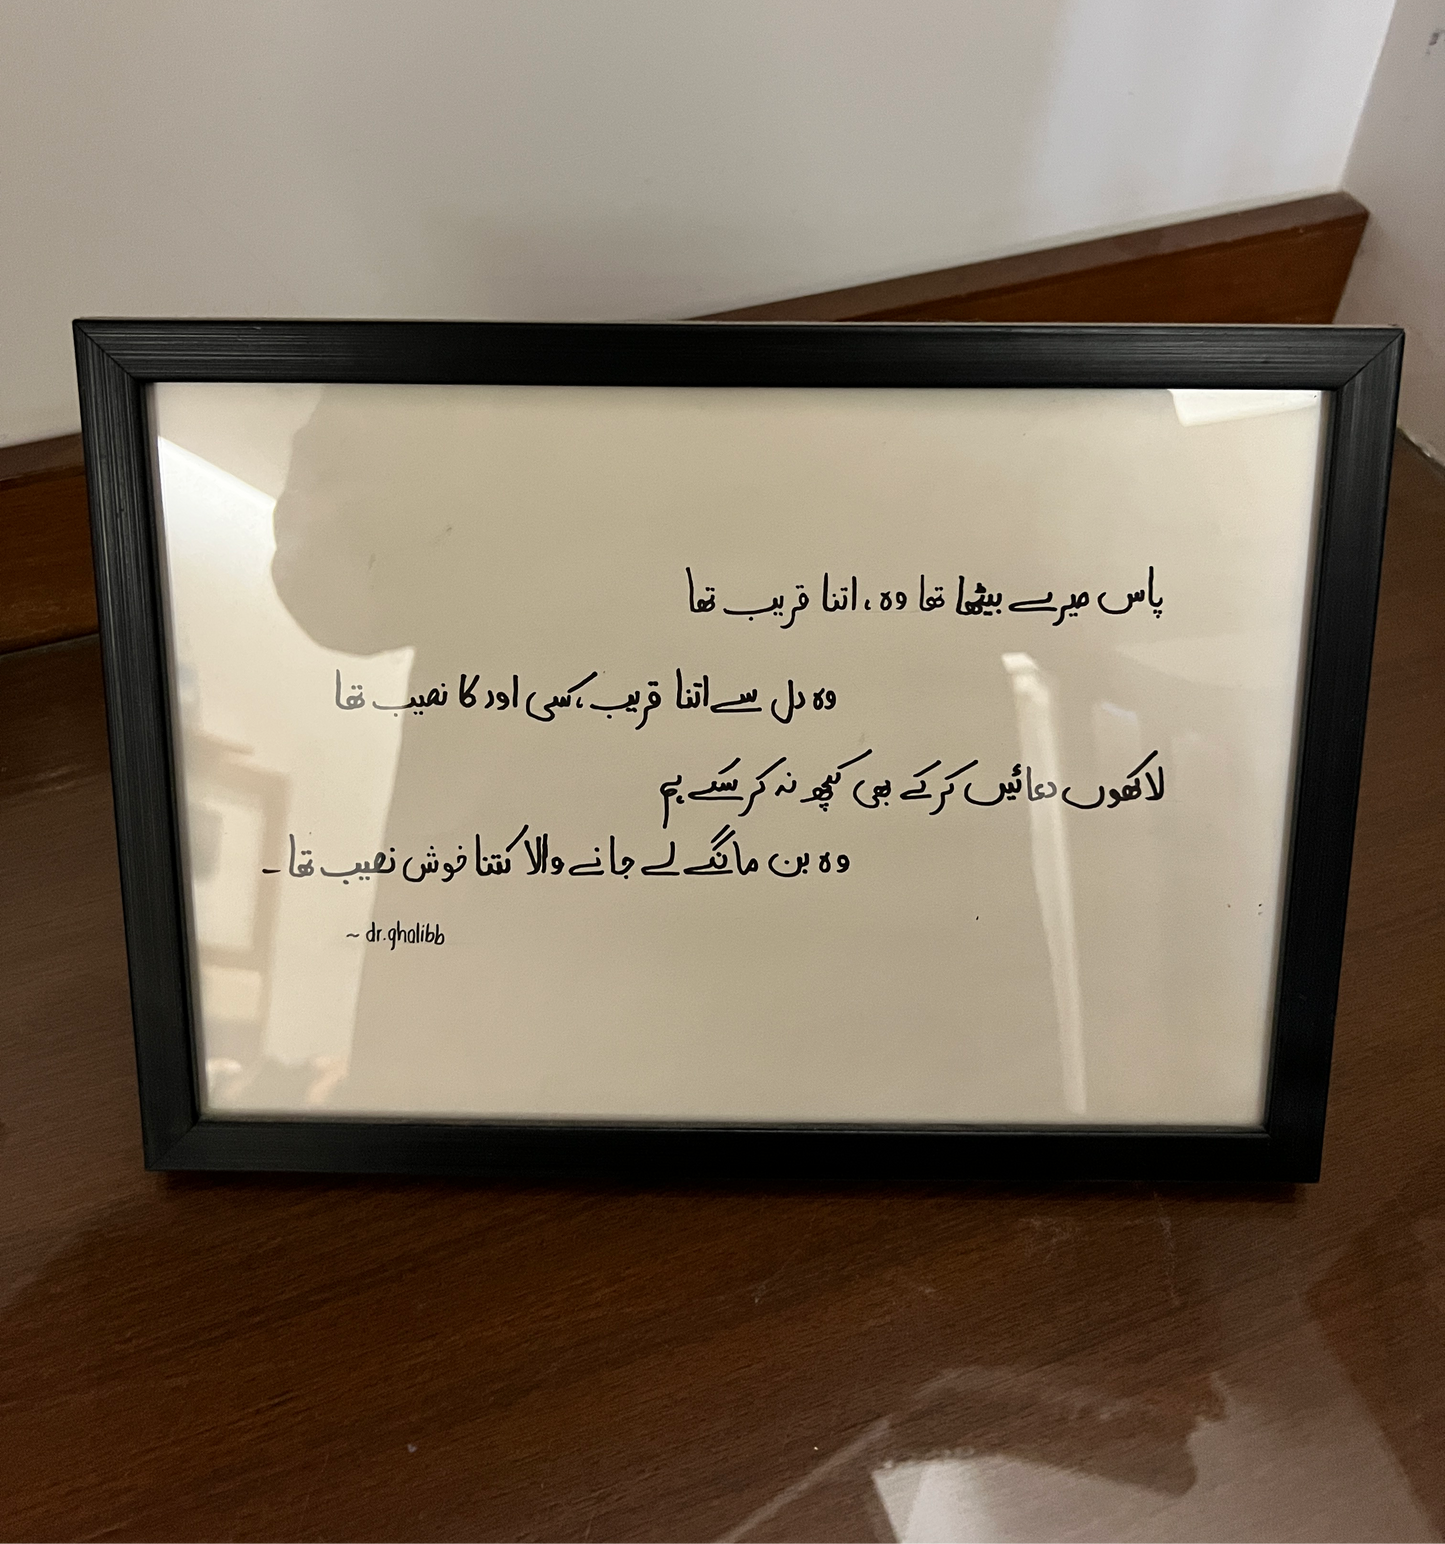 پاس میرے بیٹھا تھا وہ، اتنا قریب تھا
وہ دل سے اتنا قریب، کسی اور کا نصیب تھا
لاکھوں دعائیں کر کے بھی کچھ نہ کر سکے ہم
وہ بن مانگے لے جانے والا کتنا خوش نصیب تھا۔
~ dr.ghalibb